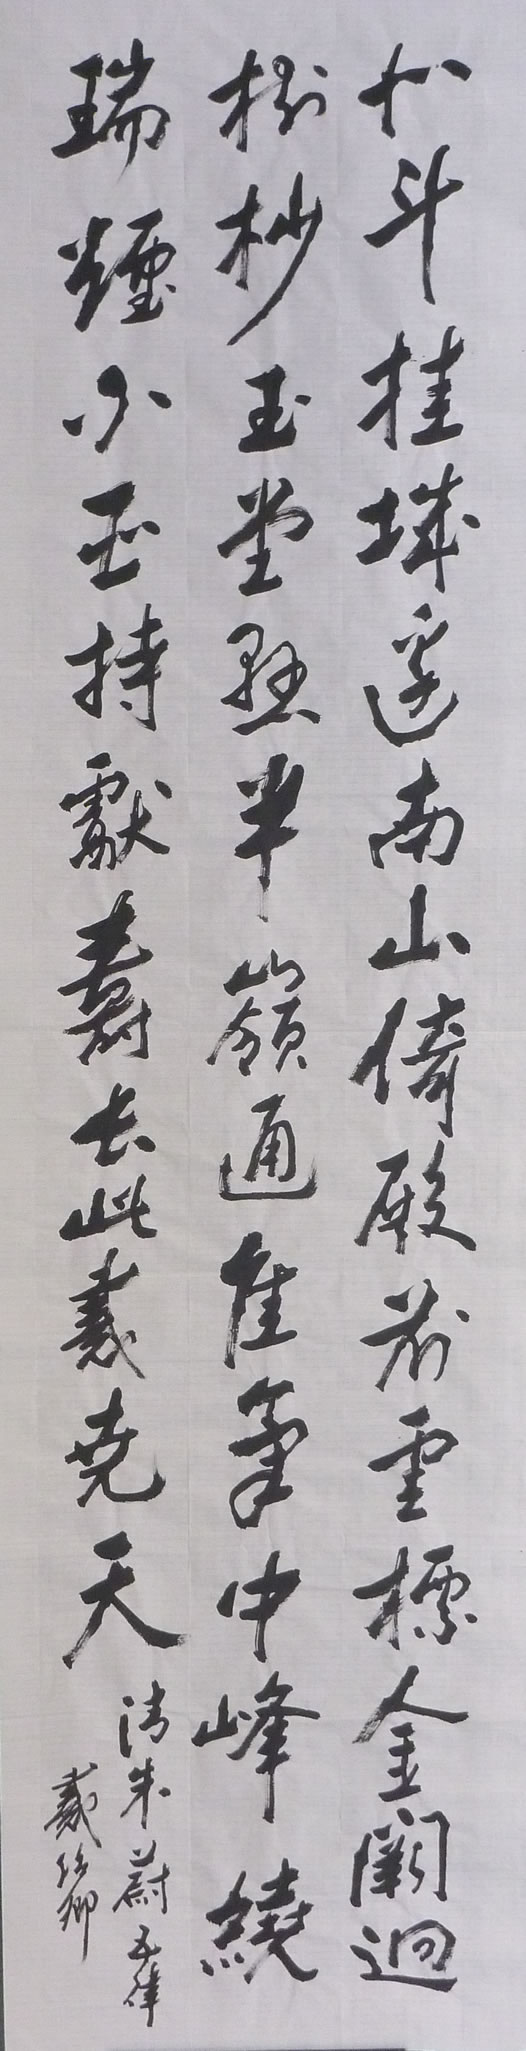 北斗挂城邊南山倚殿前雲標金闕迥
樹杪玉堂懸半嶺通佳氣中峰繞
瑞煙小臣持獻壽長此戴堯天
清朱蔚五律
戴卿